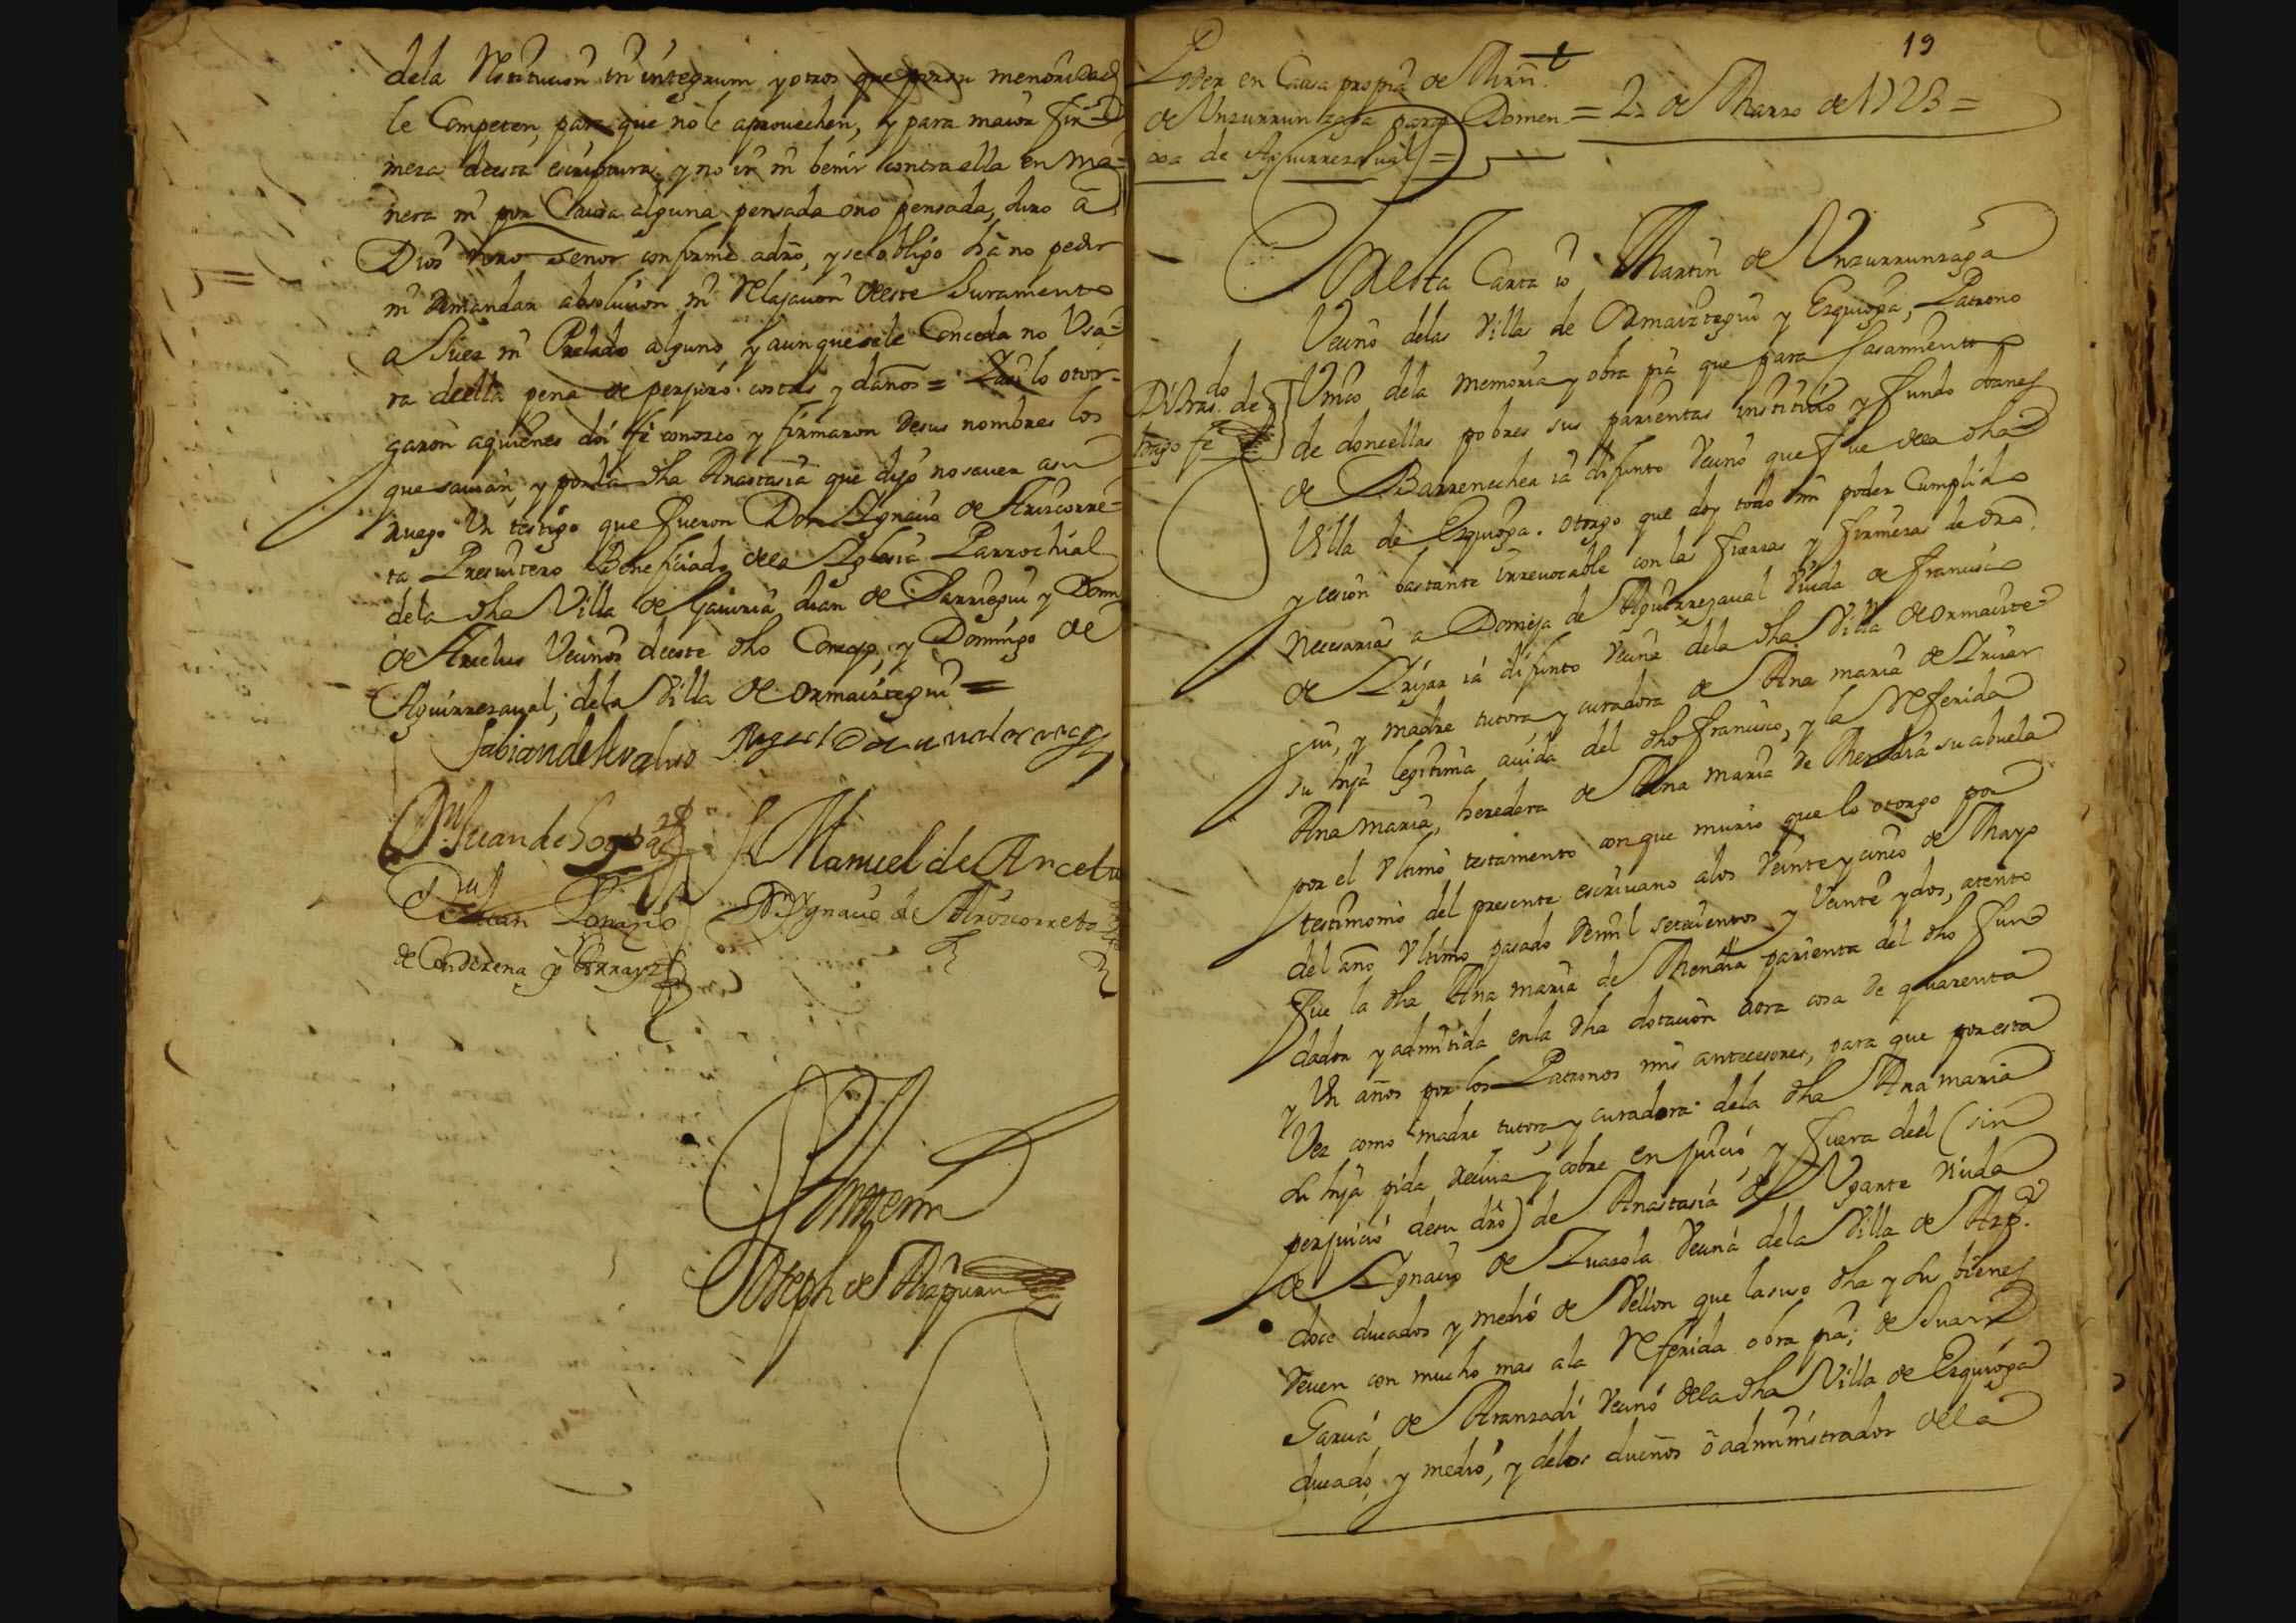 dela Restitucion in integrum y otros que por su menoridad
le Competen, para que no le aprouechen, y para maior fir=
meza deesta escriptura, y no ir ni benir contra ella en ma=
nera ni por Causa alguna pensada o no pensada, Juro a
Dios nro Senor conforme a dro, y se obligo ha no pedir
ni demandar absolucion ni Relajacion deeste Juramento
a Juez ni Prelado alguno, y aunque sele Conceda no Usa=
ra deella pena de perjuro costas y daños = Y asi lo otor-
garon aquienes doi fe conozco y firmaron desus nombres los
que sauian, y por la dha Anastasia que dijo no sauer asu
ruego Un testigo que fueron Don Ignacio de Arizcorre=
ta Presuitero Beneficiado dela Iglesia Parrochial
dela dha Villa de Gauiria, Juan de Larriegui y Domin
de Arcelus Vecinos deeste dho Concejo, y Domingo de
Aguirrezaual, dela Villa de Ormaiztegui =
Dn Juan de
Manuel de Arcelu
Dn Juan Ignazio
Dn Ygnacio de Arizcorreta
de
Ante mi
Joseph de
19
Poder en Causa propia de Mrn
de Unzurrunzaga para Domen
xa de Aguirrezaual =
= 2 de Marzo de 1723 =
Por esta Carta io Martin de Unzurrunzaga
Vecino delas Villas de Ormaiztegui y Ezquioga, Patrono
Unico dela memoria y obra pia que para Casamiento
de doncellas pobres sus parientas instituio y fundo
de Barrenechea ia difunto Vecino que fue dela dha
Villa de Ezquioga. otorgo que doy todo mi poder Cumplido
y cesion bastante irreuocable con las fuerzas y firmezas de dro
necesarias a Domeja de Aguirrezaual Viuda de francisco
de Irijar ia difunto Vecina dela dha Villa de Ormaizte=
gui, y madre tutora y curadora de Ana maria de Irizar
su hija legitima auida del dho francisco, y la Referida
Ana maria, heredera de Ana maria de Mendia su abuela
por el Ultimo testamento con que murio que lo otorgo por
testimonio del presente escriuano alos Veinte y cinco de Mayo
del año Ultimo pasado demil setecientos y Veinte y dos, atento
fue la dha Ana maria de Mendia parienta del dho fun
dador y admitida enla dha dotacion aora cosa de quarenta
y Un años por los Patronos mis antecesores, para que por esta
Vez como madre tutora y curadora dela dha Ana maria
su hija pida reciua y cobre en juicio, y fuera deel (sin
perjuicio desu dro) de Anastasia de Ugarte Viuda
de Ignacio de Zuazola Vecina dela Villa de Azp.
doce ducados y medio de Vellon que la suso dha y su bienes
deuen con mucho mas ala Referida obra pia; de Juan
Garcia de Aranzadi Vecino dela dha Villa de Ezquioga
ducado y medio, y delos dueños o administrador dela
Di tras.do de
hago fe